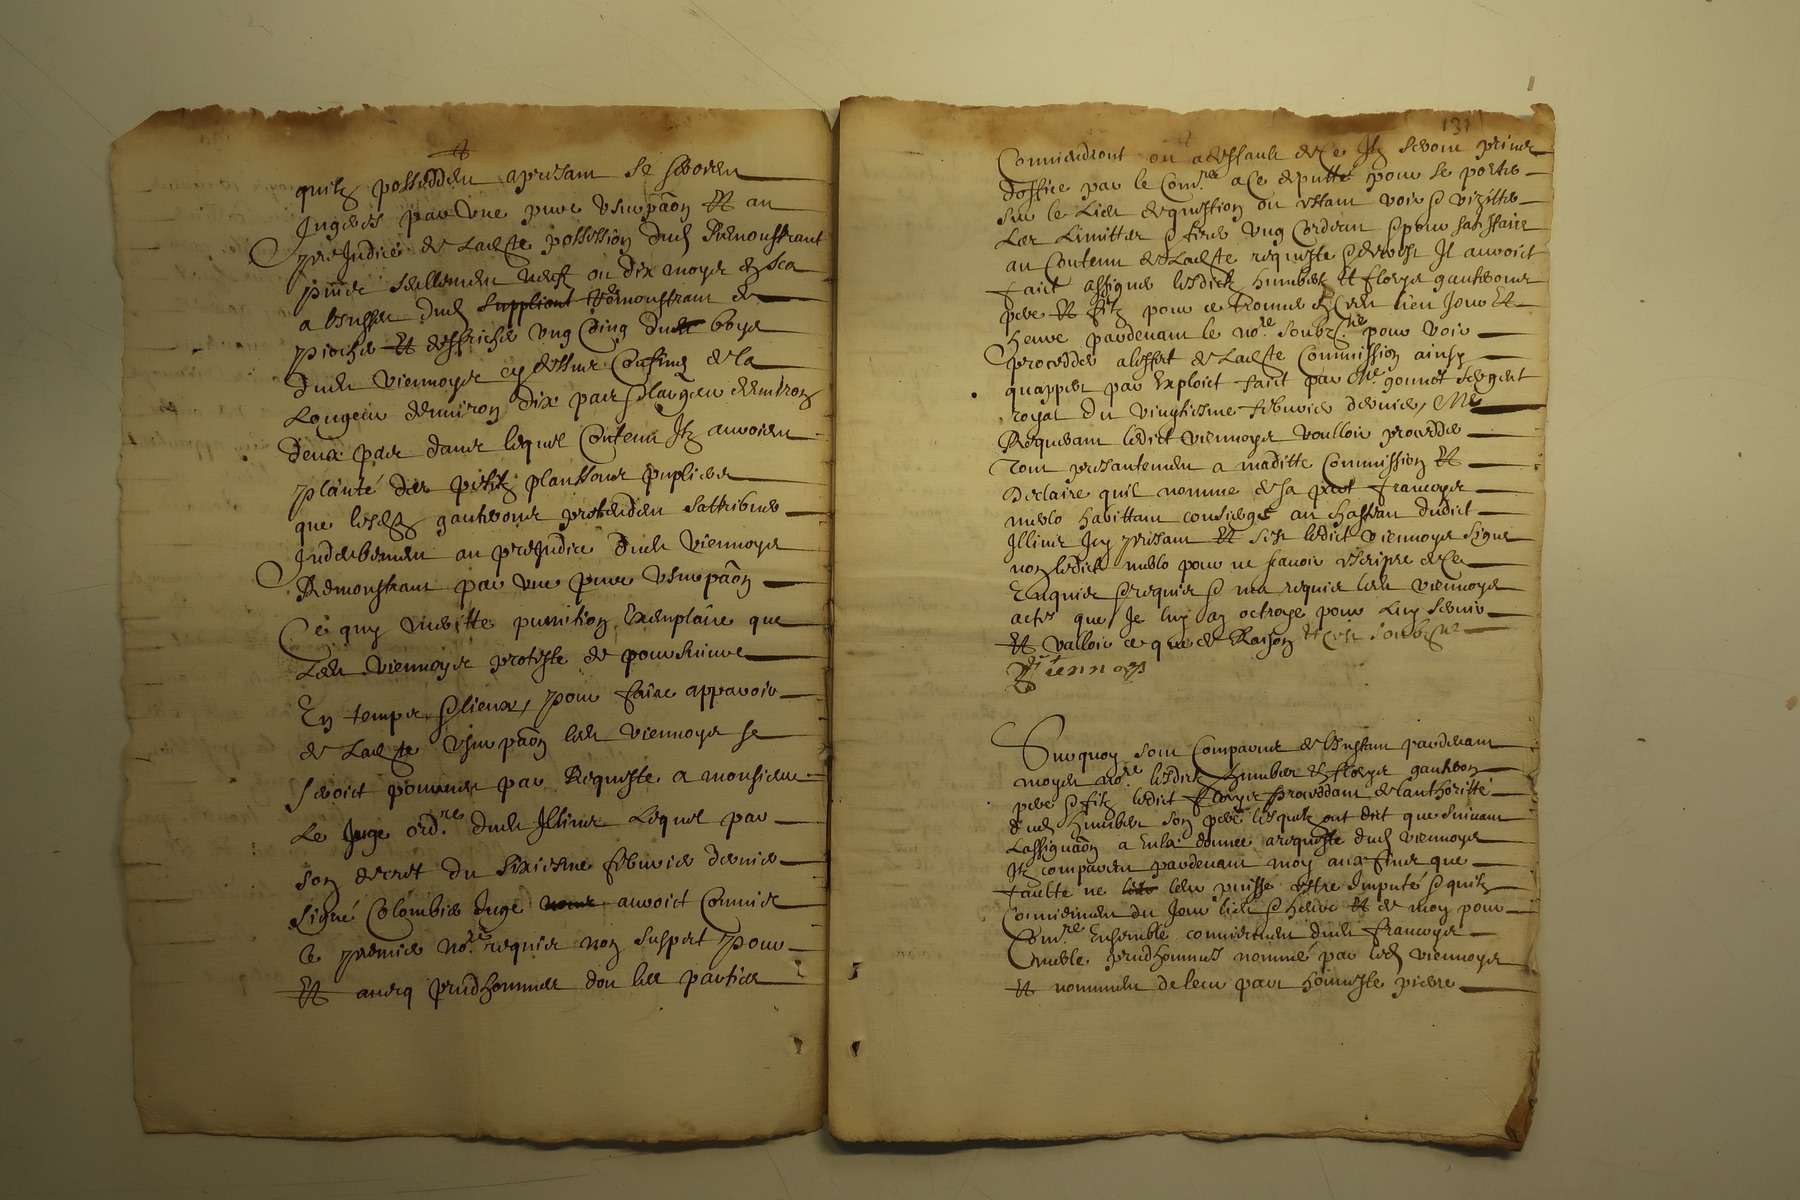 quilz possedden apresam se seroien
Ingeres par une pure usurpaõn Et au
prejudice de Ladte possession dud Remonstrant
puis seullemen neuf ou dix moys en sca
a linsceu dud suppliant Remonstram de
piocher Et deffricher ung Coing dud boys
dud Viennoys cy dessus Confiné de la
Longeur denviron dix pas & largeur denviron
deux pas dans lequel Contenu Ilz auroien
planté des petitz planssons pupliers
que lesdz gautherons pretenden sattribuer
Induebemen au prejudice dud Viennoys
Remonstrant par une pure usurpaõn
Ce quy meritte punition Exemplaire que
Led Viennoys proteste de poursuivre
En temps & lieux, pour faire apparoir
de Ladte usurpaõn led Viennoys se
seroict pourveu par Requeste a monsieur
Le Juge ord.re dud Illins Lequel par
son decret du sixiesme febvrier dernier
signé Colombier Juge auroict Commis
le premier no.re requis non suspet pour
Et avecq prudhommes don les parties
131
Conviendront ou a deffault de Ce Ilz seront prins
doffice par le Com.re a Ce deputté pour se porter
sur le Lieu de question ou estant voir & vizitter
Les Limittes & fere ung Cordeau & pour satisffaire
au Contenu de Ladte requeste & decret Il auroict
faict assigner lesdictz humbert Et fleurys gautherons
pere Et filz pour ce trouver En Ces lieu Jour Et
heure pardevant le no.re soubz.ne pour voir
proceder a leffect de Ladte Commission ainsy
quappert par Exploict faict par Me gonnet sergent
royal du vingtiesme febvrier dernier, Me
Requerant ledict Viennoys voulloir proceder
tout presantement a maditte Commission Et
Declaire quil nomme de sa part francoys
merlo habittant concierge au chasteau dudict
Illins Icy presant Et sest ledict Viennoys signé
non ledict merlo pour ne scavoir escripre de Ce
Enquis & requis & ma requis led Viennoys
acte que Je luy ay octroyé pour Luy servir
Et valloir ce que de Raison Et Cest soubz.ne
Viennoys
Surquoy sont Comparus de linstam pardevant
moyd no.re lesdictz humbert & fleurys gautheron
pere & filz ledict fleurys proceddam de lauthoritté
dud humbert son pere lesquelz ont dict que suivant
Lassignaõn a Eulx donnee a requeste dud Viennoys
Ilz comparen pardevant moy aux fins que
faulte ne leur puisse estre Imputé & quilz
Conviennen du Jour lieu & heure Et de moy pour
Com.re Ensemble conviennen dud francoys
merle prudhommes nommé par led Viennoys
Et nommen de leur part honneste pierre